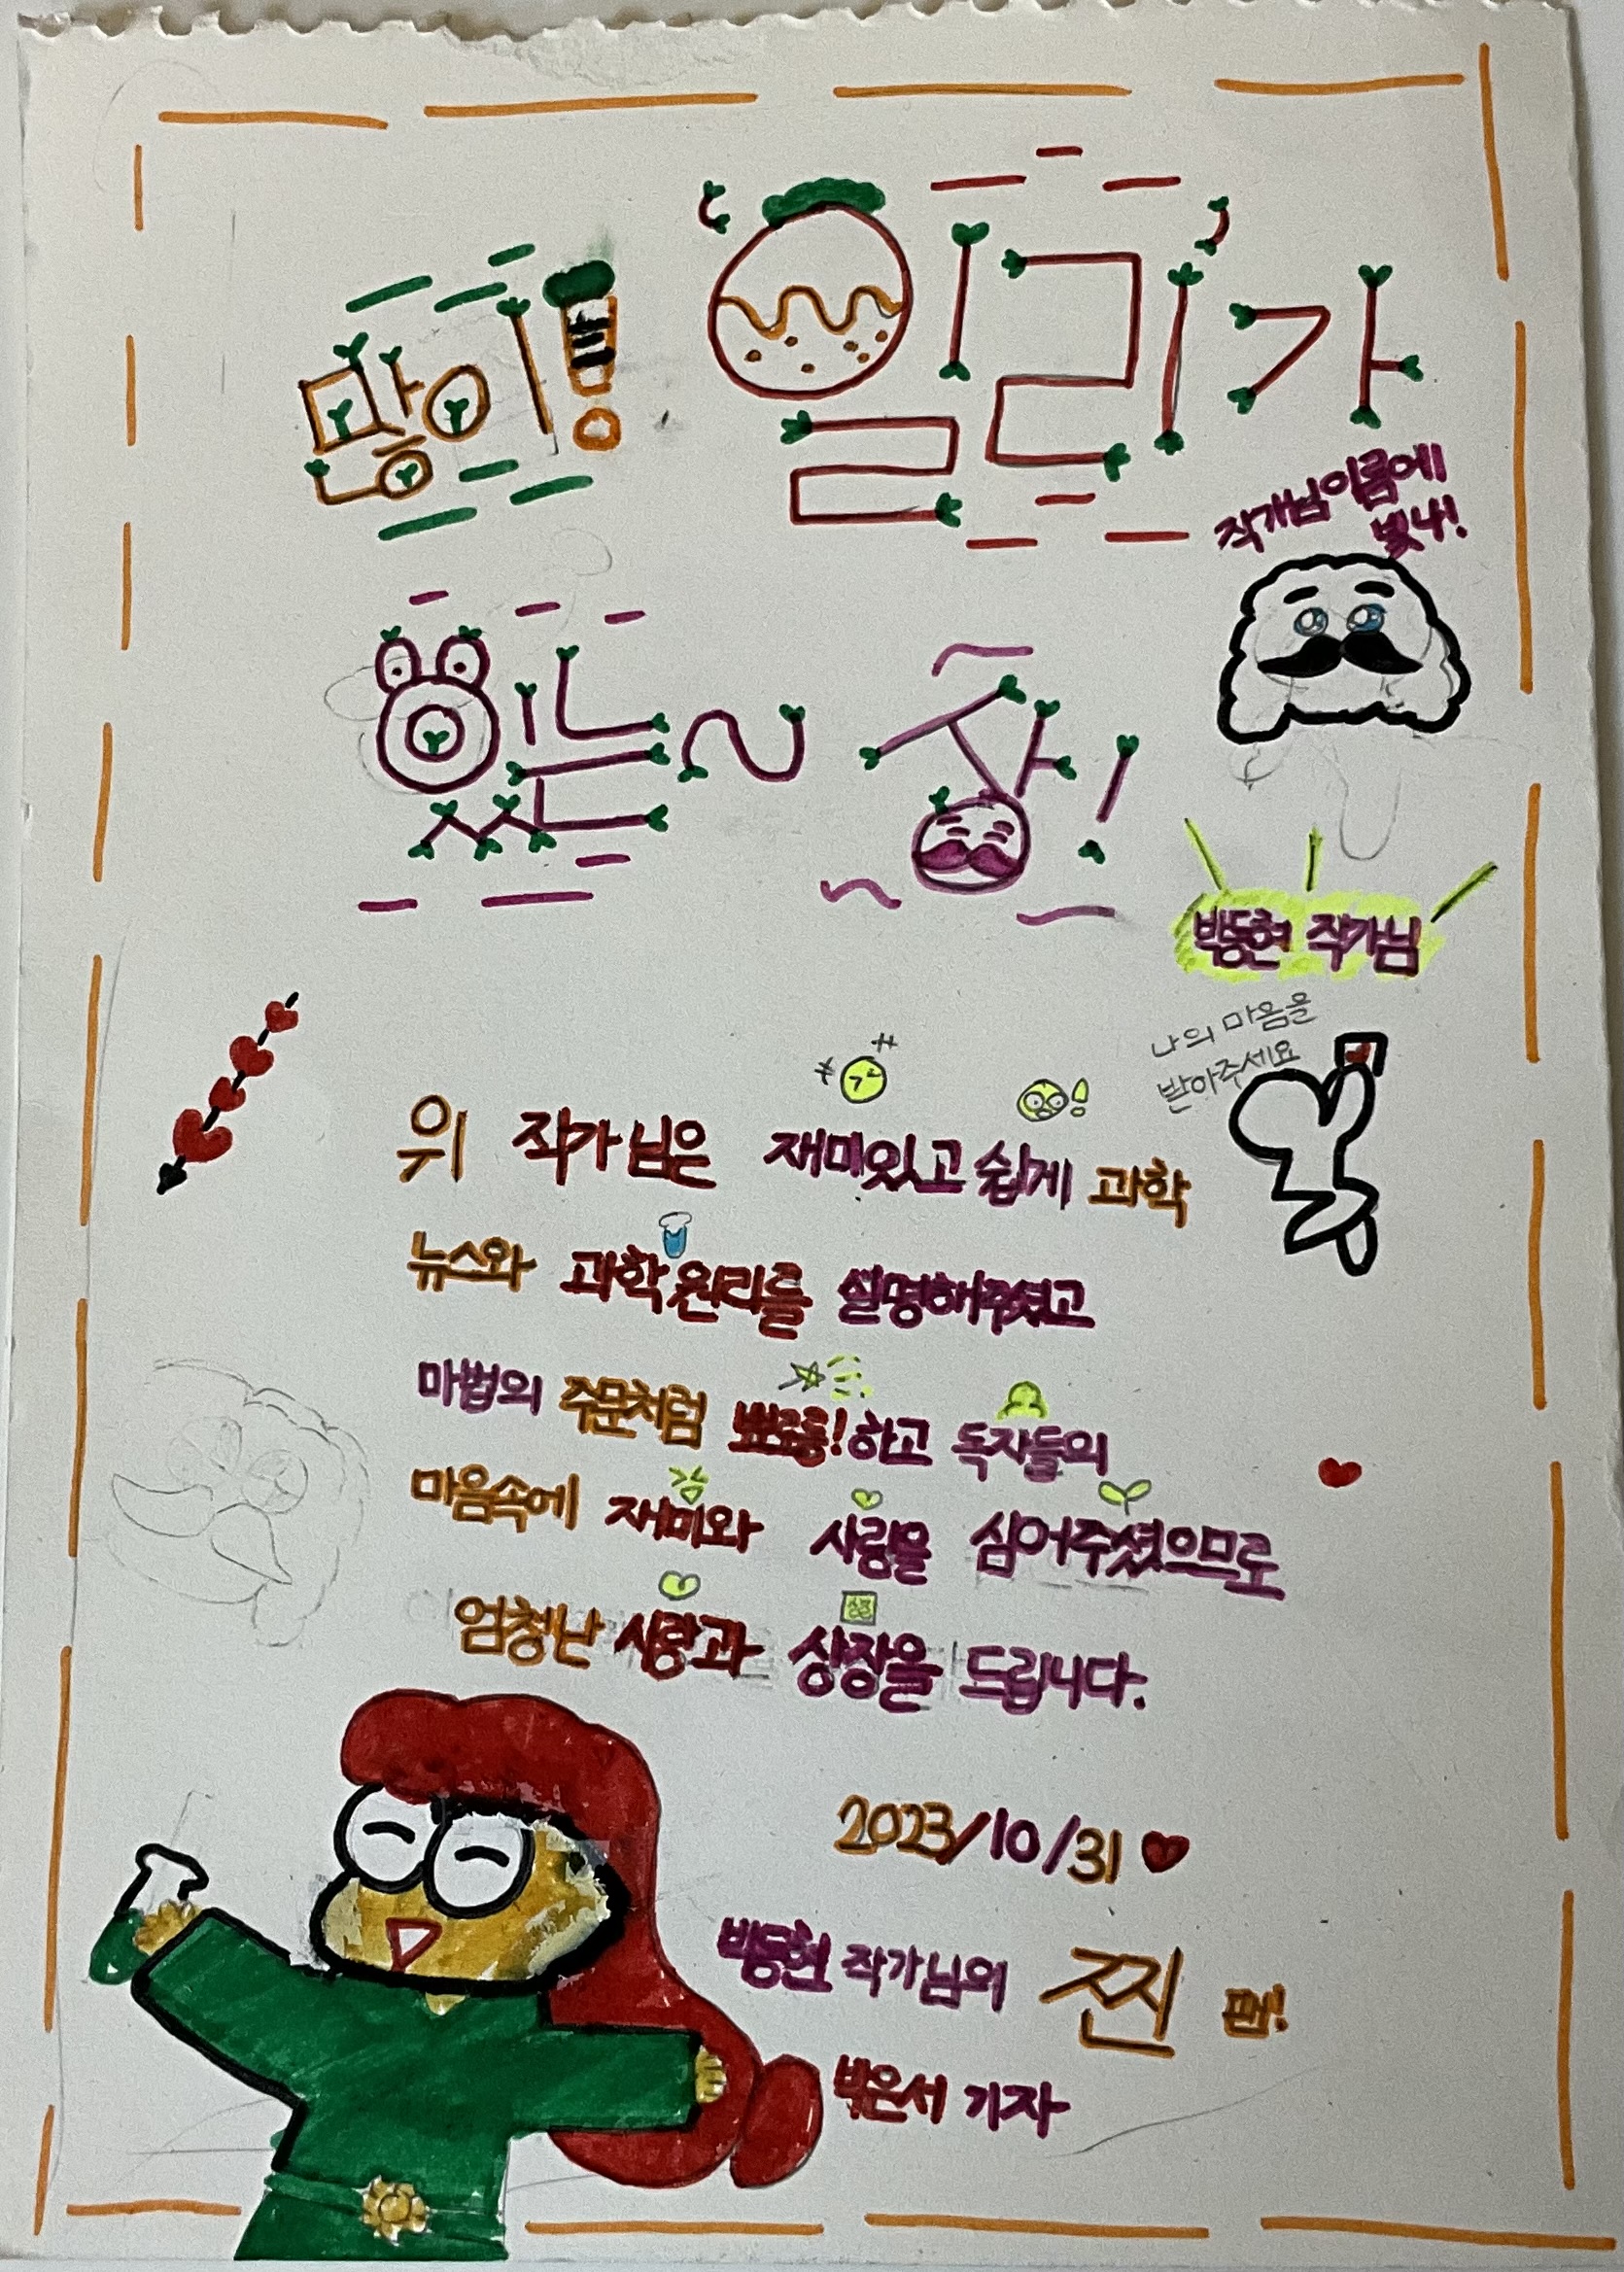 일리가
작가님이름에
빛나!
있는~ 상!
박동현 작가님
나의 마음을
받아주세요
위 작가님은 재미있고 쉽게 과학
뉴스와 과학원리를 설명해주셨고
마법의 주문처럼 뾰로롱! 하고 독자들의
마음속에 재미와 사랑을 심어주셨으므로
엄청난 사랑과 상장을 드립니다.
2023/10/31
박동현 작가님의 찐 팬!
박은서 기자